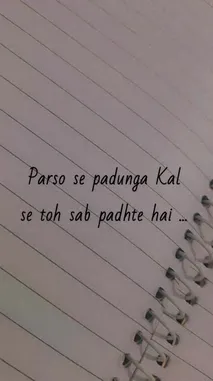 Parso se padunga Kal
se toh sab padhte hai ...